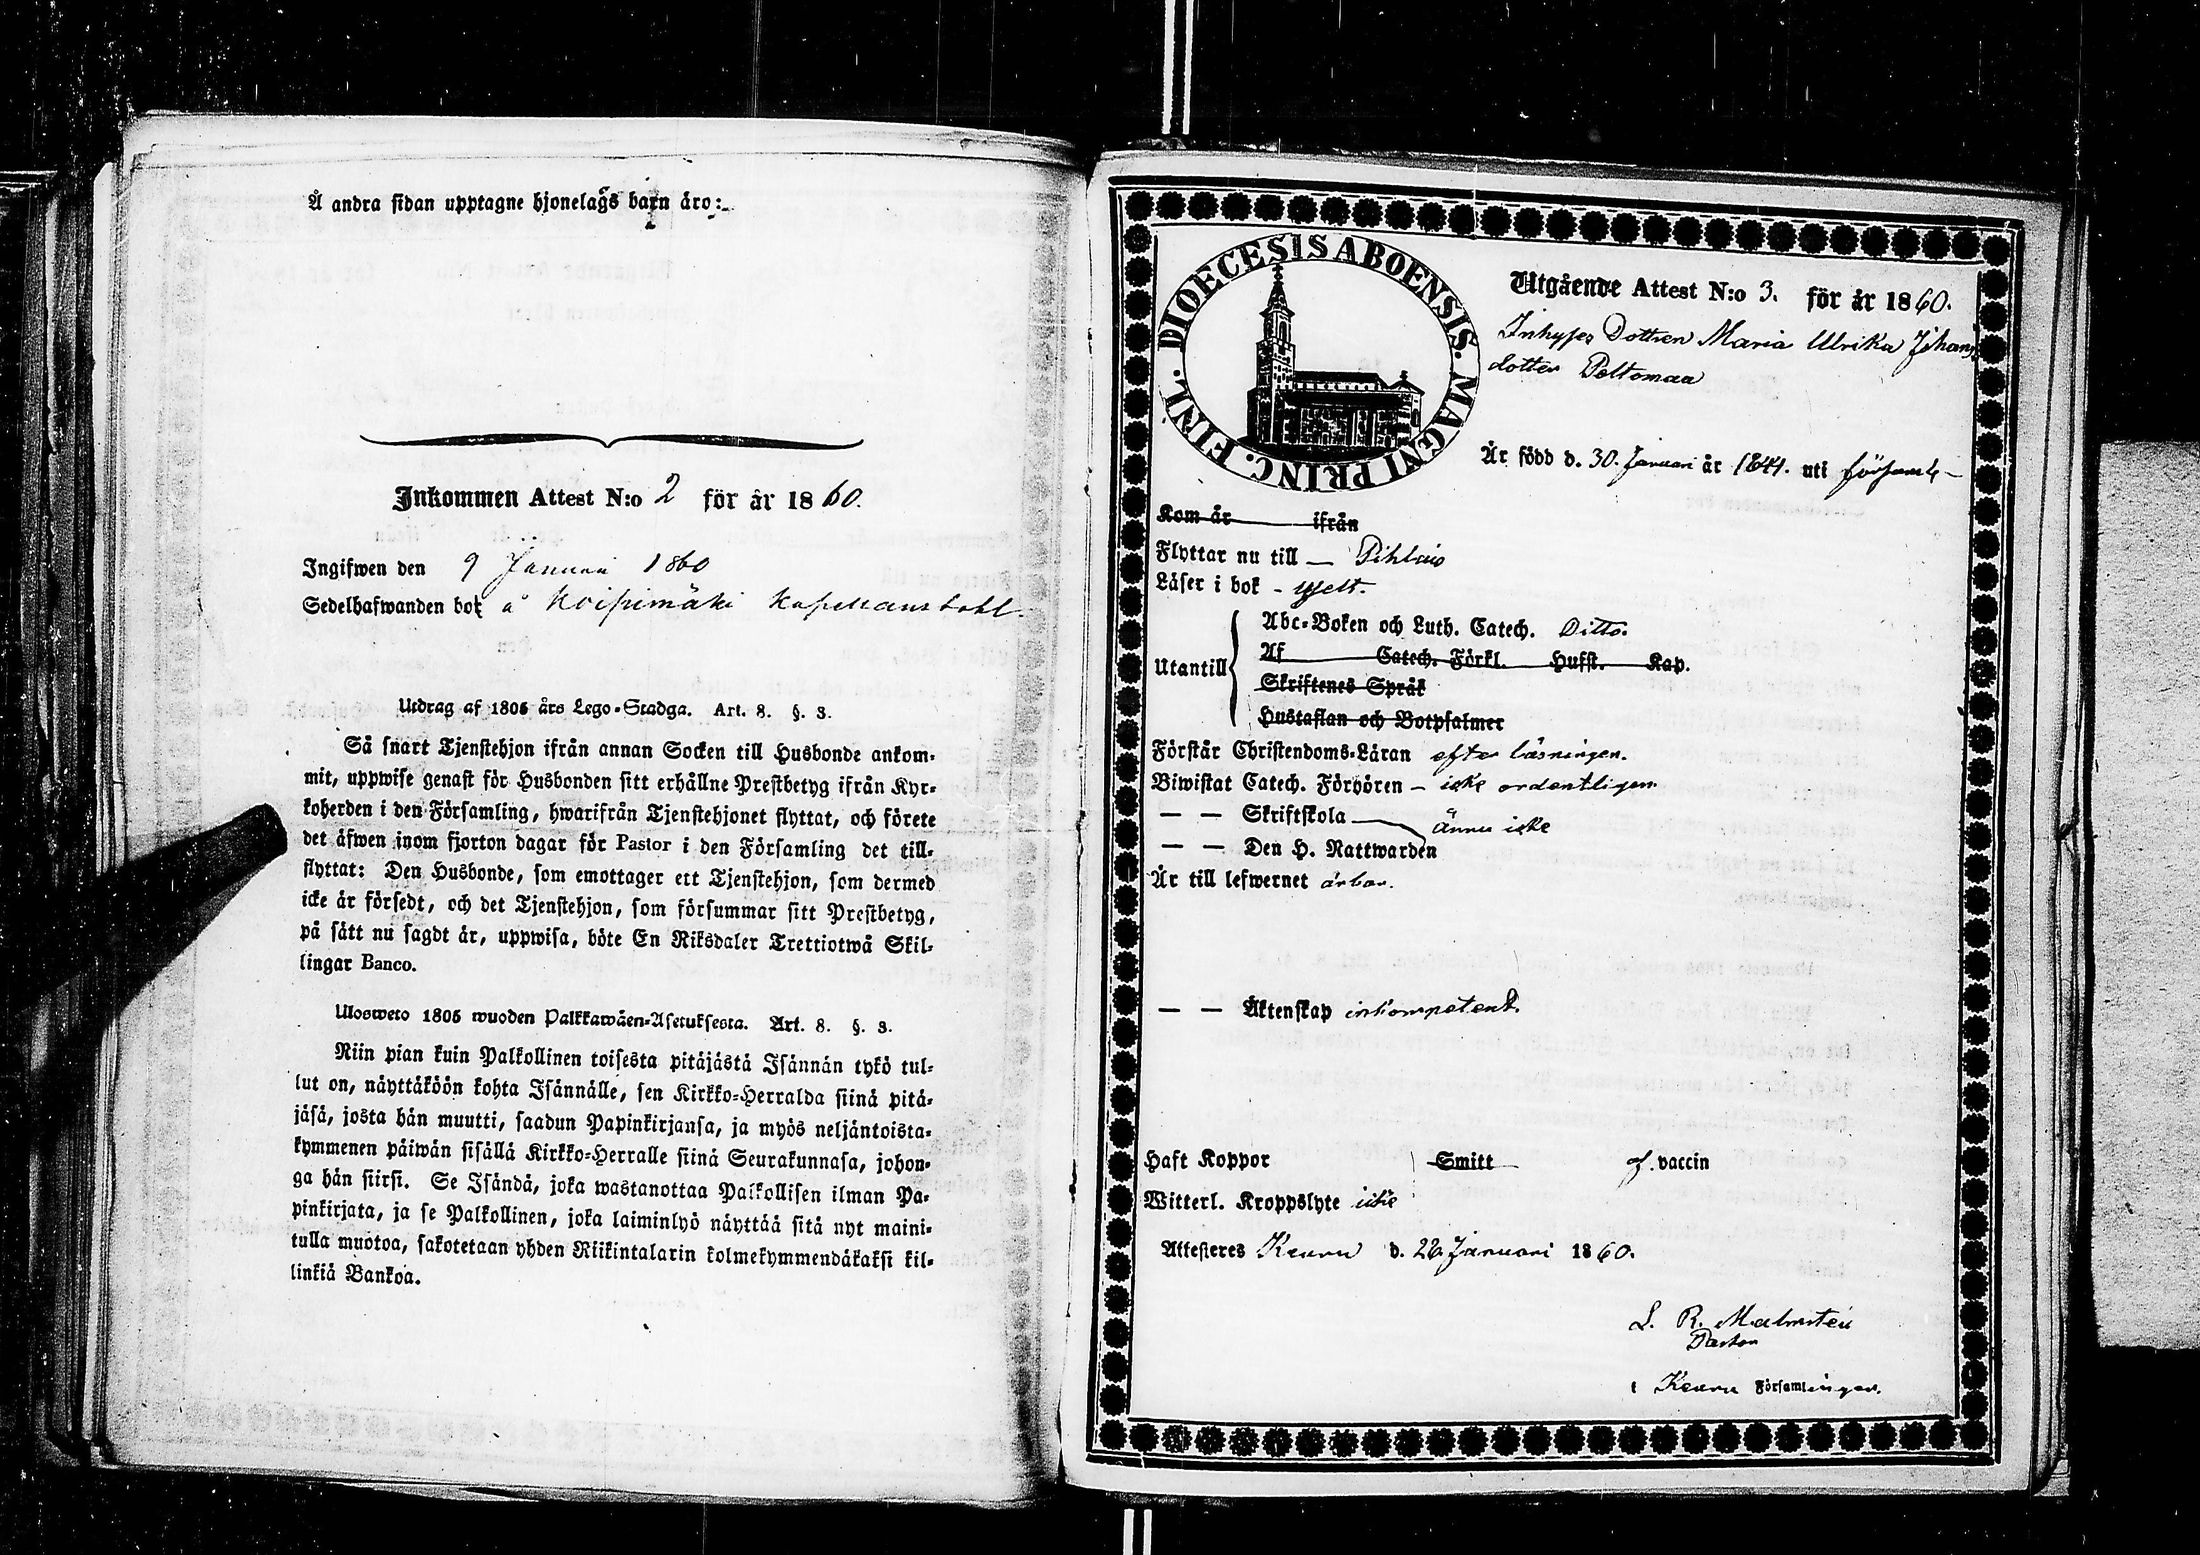 Å andra sidan upptagne hjonelags barn äro:
Inkommen Attest N:o 2 för år 1860.
Ingifwen den 9 Januari 1860
Sedelhafwanden bor å Koipimäki Kapellansbohl.
Utdrag af 1805 års Lego-Stadga. Art. 8. §. 3.
Så snart Tjenstehjon ifrån annan Socken till Husbonde ankom-
mit, uppwise genast för Husbonden sitt erhållne Prestbetyg ifrån Kyr-
koherden i den Församling, hwarifrån Tjenstehjonet flyttat, och förete
det äfwen inom fjorton dagar för Pastor i den Församling det till-
flyttat: Den Husbonde, som emottager ett Tjenstehjon, som dermed
icke är försedt, och det Tjenstehjon, som försummar sitt Prestbetyg,
på sätt nu sagdt är, uppwisa, böte En Riksdaler Trettiotwå Skil-
lingar Banco.
Ulosweto 1805 wuoden Palkkawäen-Asetuksesta. Art. 8. §. 3.
Niin pian kuin Palkollinen toisesta pitäjästä Isännän tykö tul-
lut on, näyttäköön kohta Isännälle, sen Kirkko-Herralda siinä pitä-
jäsä, josta hän muutti, saadun Papinkirjansa, ja myös neljäntoista-
kymmenen päiwän sisällä Kirkko-Herralle siinä Seurakunnasa, johon-
ga hän siirsi. Se Isändä, joka wastanottaa Palkollisen ilman Pa-
pinkirjata, ja se Palkollinen, joka laiminlyö näyttää sitä nyt maini-
tulla muotoa, sakotetaan yhden Riikintalarin kolmekymmendäkaksi kil-
linkiä Bankoa.
DIOECESIS ABOENSIS. MAGNI PRINC. FINL.
Utgående Attest N:o 3. för år 1860.
Inhyses Dottren Maria Ulrika Johans
dotter Peltomaa
Är född d. 30. Januari år 1844. uti församl-
Kom år ifrån
Flyttar nu till — Pihlais
Läser i bok -
Utantill
Abc-Boken och Luth. Catech. Ditto.
Af Catech. Förkl. Hufst. Kap.
Skriftenes Språk
Hustaflan och Botpsalmer
Förstår Christendoms-Läran efter läsningen.
Biwistat Catech. Förhören — icke ordentligen.
— — Skriftskola ännu icke
— — Den H. Nattwarden
Är till lefwernet ärbar.
— — Äktenskap inkompetent.
Haft Koppor Smitt vaccin
Witterl. Kroppslyte icke
Attesteres Keuru d. 22 Januari 1860.
L. R. Malmstén
Pastor
i Keuru Församlingen.